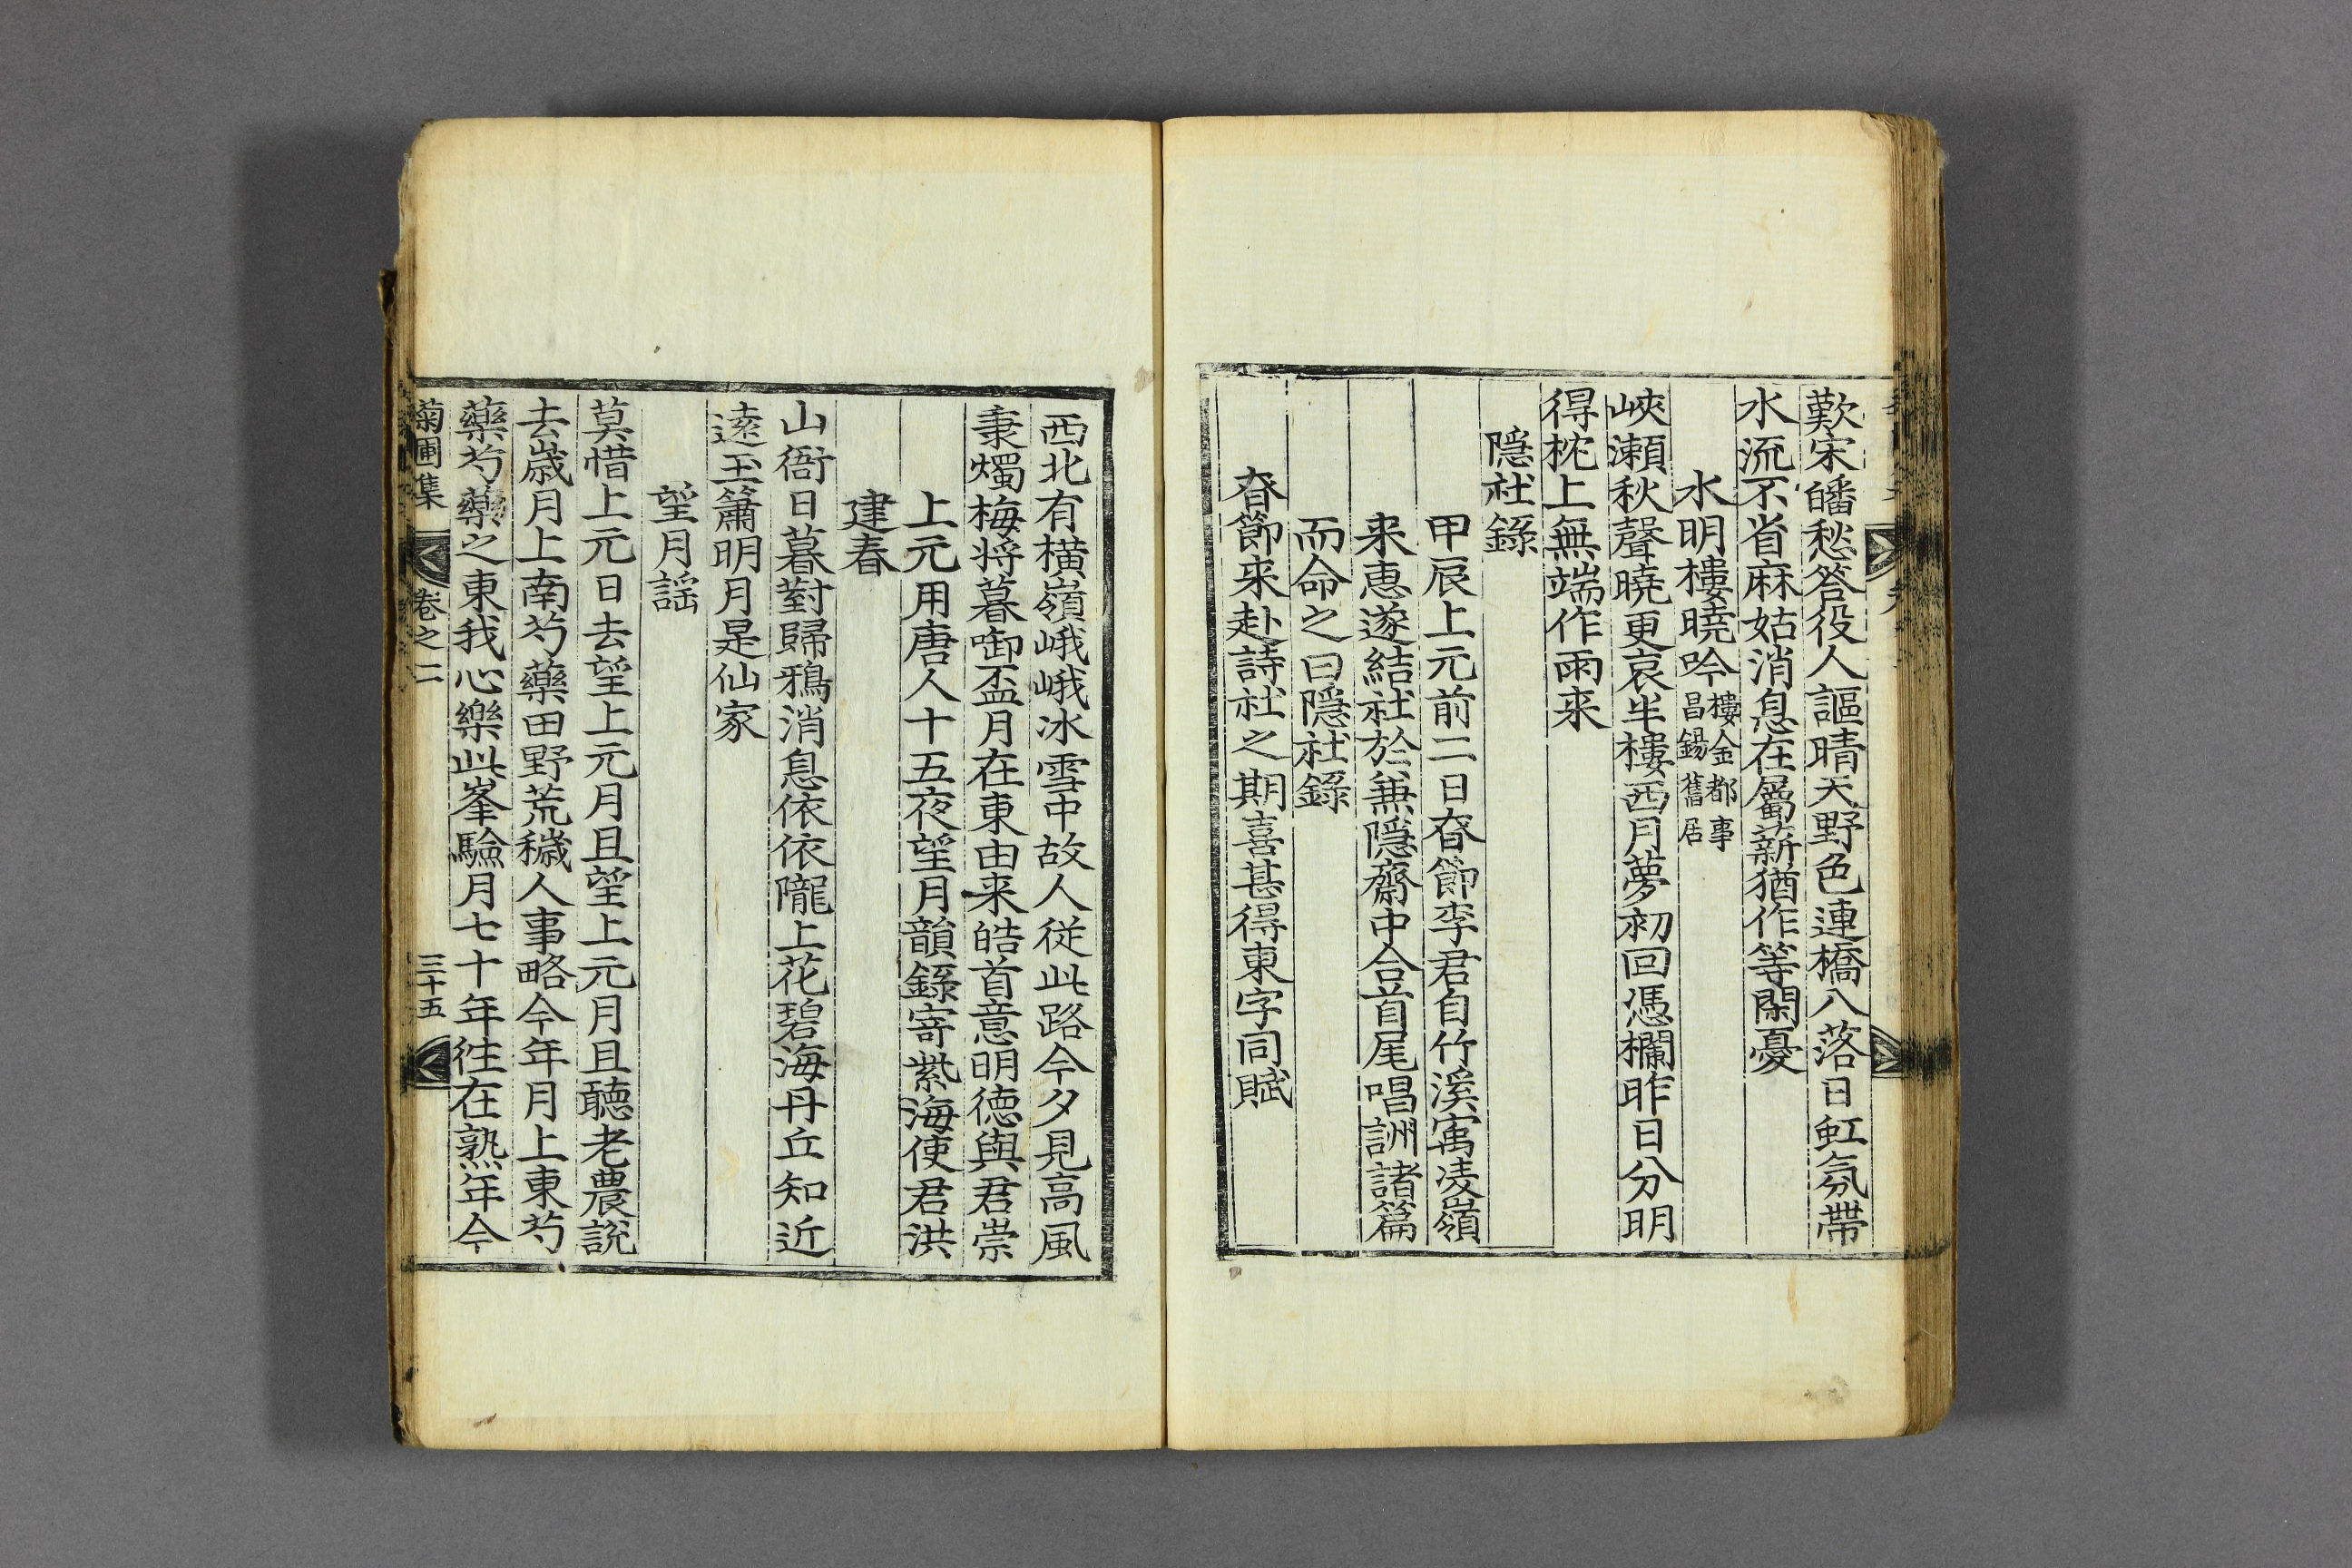 歎宋皤愁答役人謳晴天野色連橋八落日虹氛帶
水流不省麻姑消息在屬薪猶作等閑憂
水明樓曉吟樓金都事
昌錫舊居
峽瀨秋聲曉更哀半樓西月夢初回憑欄昨日分明
得枕上無端作雨来
隱社錄
甲辰上元前二日春節李君自竹溪寓凌嶺
来惠遂結社於兼隱齋中合首尾唱詶諸篇
而命之曰隱社錄
春節来赴詩社之期喜甚得東字同賦
西北有橫嶺峨峨冰雪中故人從此路今夕見高風
秉燭梅將暮啣盃月在東由来皓首意明德與君崇
上元用唐人十五夜望月韻錄寄紫海使君洪
建春
山衙日暮對歸鴉消息依依隴上花碧海丹丘知近
遠玉簫明月是仙家
望月謠
莫惜上元日去望上元月且望上元月且聽老農說
去歲月上南芍藥田野荒穢人事略今年月上東芍
藥芍藥之東我心樂此峯驗月七十年徃在熟年今
菊圃集
卷之二
三十五